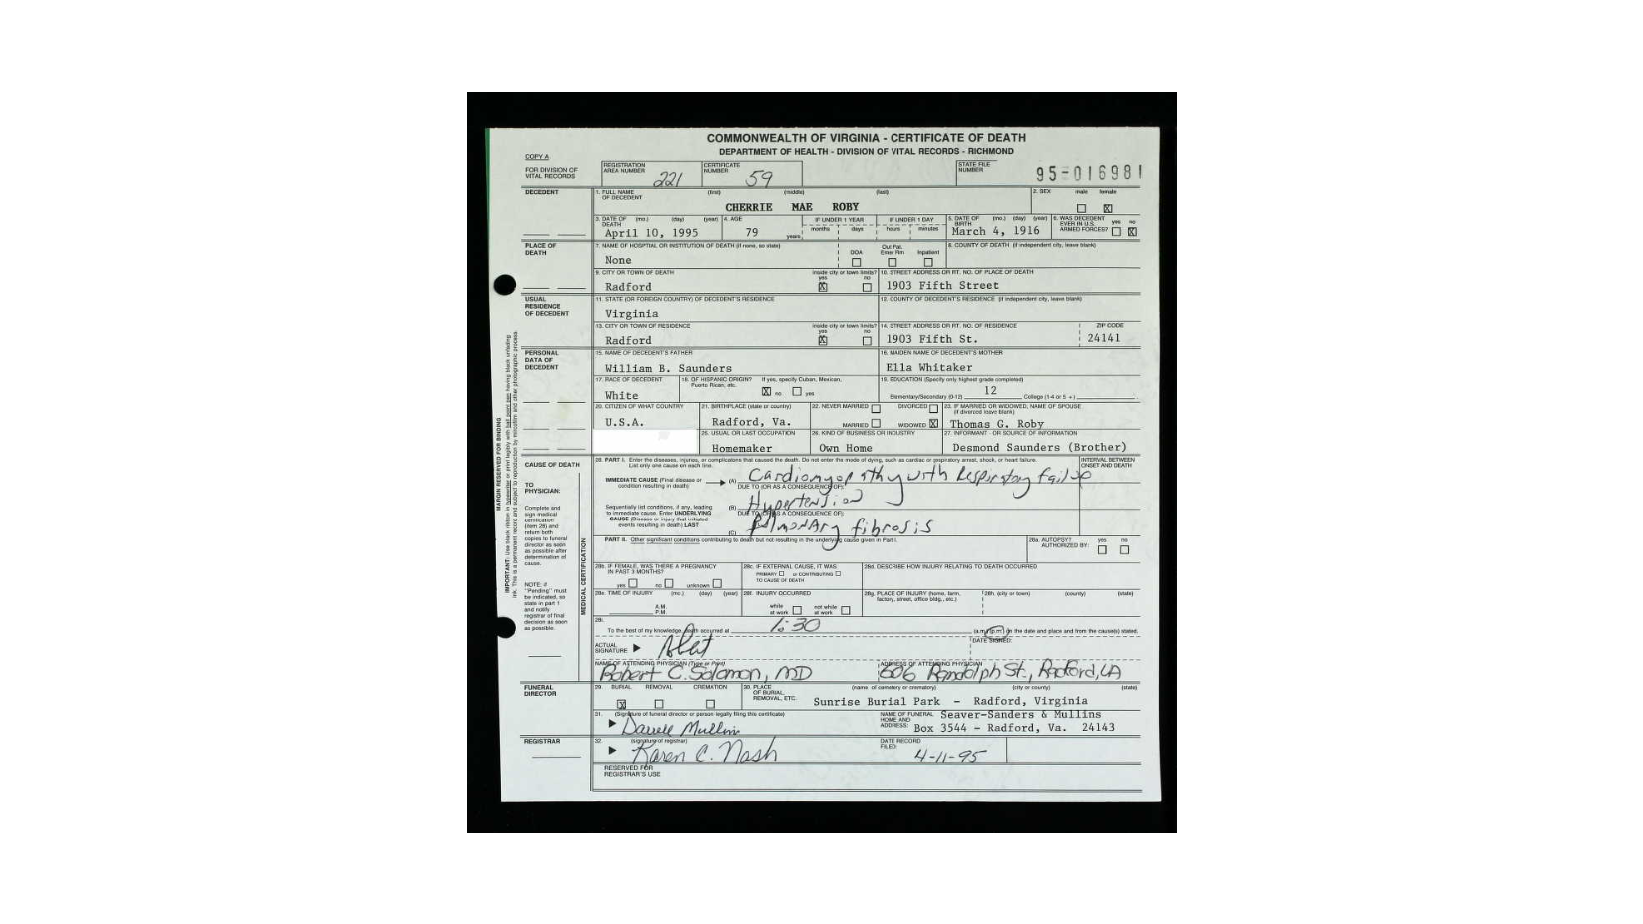 COMMONWEALTH OF VIRGINIA - CERTIFICATE OF DEATH
DEPARTMENT OF HEALTH - DIVISION OF VITAL RECORDS - RICHMOND
COPY A
FOR DIVISION OF VITAL RECORDS
REGISTRATION AREA NUMBER 221
CERTIFICATE NUMBER 59
STATE FILE NUMBER 95-016981
DECEDENT
1. FULL NAME OF DECEDENT (first) (middle) (last)
CHERRIE MAE ROBY
2. SEX male female X
3. DATE OF DEATH (mo.) (day) (year) April 10, 1995
4. AGE 79 years
IF UNDER 1 YEAR months days
IF UNDER 1 DAY hours minutes
5. DATE OF BIRTH (mo.) (day) (year) March 4, 1916
6. WAS DECEDENT EVER IN U.S. ARMED FORCES? yes no X
PLACE OF DEATH
7. NAME OF HOSPTIAL OR INSTITUTION OF DEATH (if none, so state)
None
DOA Out Pat. Emer Rm Inpatient
8. COUNTY OF DEATH (if independent city, leave blank)
9. CITY OR TOWN OF DEATH
Radford
inside city or town limits? yes X no
10. STREET ADDRESS OR RT. NO. OF PLACE OF DEATH
1903 Fifth Street
USUAL RESIDENCE OF DECEDENT
11. STATE (OR FOREIGN COUNTRY) OF DECEDENT'S RESIDENCE
Virginia
12. COUNTY OF DECEDENT'S RESIDENCE (if independent city, leave blank)
13. CITY OR TOWN OF RESIDENCE
Radford
inside city or town limits? yes X no
14. STREET ADDRESS OR RT. NO. OF RESIDENCE
1903 Fifth St.
ZIP CODE 24141
PERSONAL DATA OF DECEDENT
15. NAME OF DECEDENT'S FATHER
William B. Saunders
16. MAIDEN NAME OF DECEDENT'S MOTHER
Ella Whitaker
17. RACE OF DECEDENT
White
18. OF HISPANIC ORIGIN? If yes, specify Cuban, Mexican, Puerto Rican, etc.
X no yes
19. EDUCATION (Specify only highest grade completed)
Elementary/Secondary (0-12) 12 College (1-4 or 5 +)
20. CITIZEN OF WHAT COUNTRY
U.S.A.
21. BIRTHPLACE (state or country)
Radford, Va.
22. NEVER MARRIED DIVORCED
MARRIED WIDOWED X
23. IF MARRIED OR WIDOWED, NAME OF SPOUSE (if divorced leave blank)
Thomas G. Roby
25. USUAL OR LAST OCCUPATION
Homemaker
26. KIND OF BUSINESS OR INDUSTRY
Own Home
27. INFORMANT - OR SOURCE OF INFORMATION
Desmond Saunders (Brother)
CAUSE OF DEATH
28. PART I. Enter the diseases, injuries, or complications that caused the death. Do not enter the mode of dying, such as cardiac or respiratory arrest, shock, or heart failure. List only one cause on each line.
INTERVAL BETWEEN ONSET AND DEATH
IMMEDIATE CAUSE (Final disease or condition resulting in death)
(A) Cardiomyopathy with Respiratory failure
DUE TO (OR AS A CONSEQUENCE OF):
Sequentially list conditions, if any, leading to immediate cause. Enter UNDERLYING CAUSE (Disease or injury that initiated events resulting in death) LAST
(B) Hypertension
DUE TO (OR AS A CONSEQUENCE OF):
(C) Pulmonary fibrosis
TO PHYSICIAN:
Complete and sign medical certification (item 28) and return both copies to funeral director as soon as possible after determination of cause.
NOTE: if "Pending" must be indicated, so state in part 1 and notify registrar of final decision as soon as possible.
MEDICAL CERTIFICATION
MARGIN RESERVED FOR BINDING
PART II. Other significant conditions contributing to death but not resulting in the underlying cause given in Part I.
28a. AUTOPSY? AUTHORIZED BY: yes no
28b. IF FEMALE, WAS THERE A PREGNANCY IN PAST 3 MONTHS?
yes no unknown
28c. IF EXTERNAL CAUSE, IT WAS
PRIMARY or CONTRIBUTING
TO CAUSE OF DEATH
28d. DESCRIBE HOW INJURY RELATING TO DEATH OCCURRED
28e. TIME OF INJURY (mo.) (day) (year)
A.M.
P.M.
28f. INJURY OCCURRED
while at work not while at work
28g. PLACE OF INJURY (home, farm, factory, street, office bldg., etc.)
28h. (city or town) (county) (state)
28i.
To the best of my knowledge, death occurred at 1:30 (a.m.) (p.m.) on the date and place and from the cause(s) stated.
ACTUAL SIGNATURE
DATE SIGNED:
NAME OF ATTENDING PHYSICIAN (Type or Print)
Robert C. Solomon, MD
ADDRESS OF ATTENDING PHYSICIAN
606 Randolph St., Radford, VA
FUNERAL DIRECTOR
29. BURIAL X REMOVAL CREMATION
30. PLACE OF BURIAL, REMOVAL, ETC. (name of cemetery or crematory) (city or county) (state)
Sunrise Burial Park - Radford, Virginia
31. (Signature of funeral director or person legally filing this certificate)
Darrell Mullins
NAME OF FUNERAL HOME AND ADDRESS:
Seaver-Sanders & Mullins
Box 3544 - Radford, Va. 24143
REGISTRAR
32. (signature of registrar)
Karen C. Nash
DATE RECORD FILED: 4-11-95
RESERVED FOR REGISTRAR'S USE